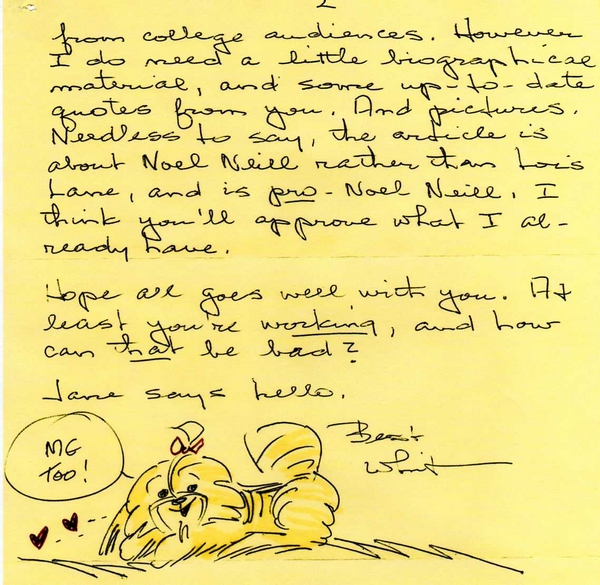 2
from college audiences. However
I do need a little biographical
material, and some up-to-date
quotes from you. And pictures.
Needless to say, the article is
about Noel Neill rather than Lois
Lane, and is pro-Noel Neill. I
think you'll approve what I al-
ready have.
Hope all goes well with you. At
least you're working, and how
can that be bad?
Jane says hello.
Best
Whit
ME
TOO!